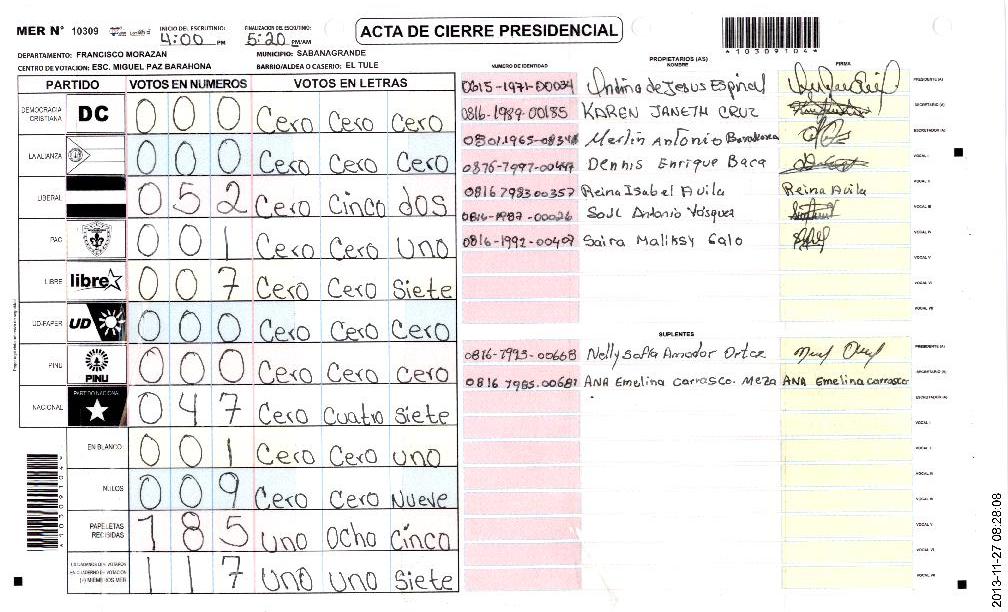 MER N° 10309
INICIO DEL ESCRUTINIO: 4:00 PM
FINALIZACION DEL ESCRUTINIO: 5:20 PM/AM
ACTA DE CIERRE PRESIDENCIAL
*10309104*
DEPARTAMENTO: FRANCISCO MORAZAN
MUNICIPIO: SABANAGRANDE
CENTRO DE VOTACION: ESC. MIGUEL PAZ BARAHONA
BARRIO/ALDEA O CASERIO: EL TULE
PARTIDO VOTOS EN NUMEROS VOTOS EN LETRAS
DEMOCRACIA CRISTIANA DC 0 0 0 Cero Cero Cero
LA ALIANZA 0 0 0 Cero Cero Cero
LIBERAL 0 5 2 Cero Cinco dos
PAC 0 0 1 Cero Cero Uno
LIBRE libre 0 0 7 Cero Cero Siete
UD-FAPER UD 0 0 0 Cero Cero Cero
PINU PINU 0 0 0 Cero Cero Cero
NACIONAL PARTIDO NACIONAL 0 4 7 Cero Cuatro Siete
EN BLANCO 0 0 1 Cero Cero uno
NULOS 0 0 9 Cero Cero Nueve
PAPELETAS RECIBIDAS 1 8 5 Uno Ocho Cinco
CIUDADANOS QUE VOTARON EN CUADERNO DE VOTACION (+) MIEMBROS MER 1 1 7 Uno Uno Siete
PROPIETARIOS (AS)
NUMERO DE IDENTIDAD NOMBRE FIRMA
0615-1971-00034 de Jesus Espinal PRESIDENTE (A)
0816-1989-00185 KAREN JANETH CRUZ SECRETARIO (A)
Merlin Antonio ESCRUTADOR (A)
Dennis Enrique Baca VOCAL I
0816 1983 00357 Reina Isabel Avila Reina Avila VOCAL II
0816-1987-00026 Saul Antonio Vasquez VOCAL III
0816-1992-00407 Saira VOCAL IV
VOCAL V
VOCAL VI
VOCAL VII
SUPLENTES
0816-1993-00668 Nelly Sofia Amador Ortez PRESIDENTE (A)
0816 1985.00681 ANA Emelina Carrasco. Meza ANA Emelina Carrasco SECRETARIO (A)
ESCRUTADOR (A)
VOCAL I
VOCAL II
VOCAL III
VOCAL IV
VOCAL V
VOCAL VI
VOCAL VII
*10309104*
2013-11-27 08:28:08